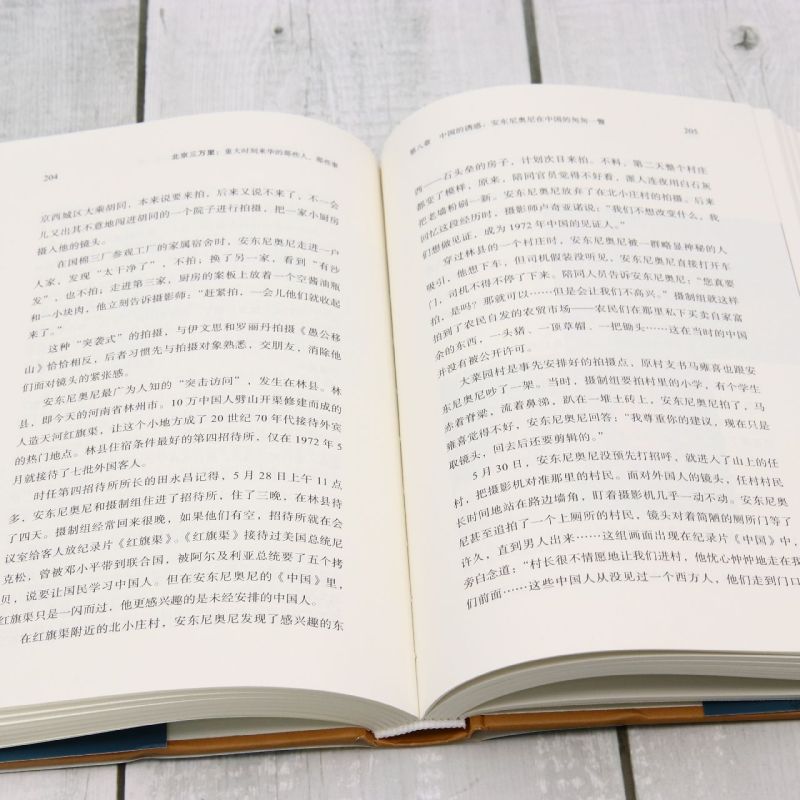 204
北京三万里：重大时刻来华的那些人，那些事
京西城区大乘胡同，本来说要来拍，后来又说不来了，不一会
儿又出其不意地闯进胡同的一个院子进行拍摄，把一家小厨房
摄入他的镜头。
在国棉三厂参观工厂的家属宿舍时，安东尼奥尼走进一户
人家，发现“太干净了”，不拍；换了另一家，看到“有沙
发”，也不拍；走进第三家，厨房的案板上放着一个空酱油瓶
和一小块肉，他立刻告诉摄影师：“赶紧拍，一会儿他们就收起
来了。”
这种“突袭式”的拍摄，与伊文思和罗丽丹拍摄《愚公移
山》恰恰相反，后者习惯先与拍摄对象熟悉，交朋友，消除他
们面对镜头的紧张感。
安东尼奥尼最广为人知的“突击访问”，发生在林县。林
县，即今天的河南省林州市。10 万中国人劈山开渠修建而成的
人造天河红旗渠，让这个小地方成了 20 世纪 70 年代接待外宾
的热门地点。林县住宿条件最好的第四招待所，仅在 1972 年 5
月就接待了七批外国客人。
时任第四招待所所长的田永昌记得，5 月 28 日上午 11 点
多，安东尼奥尼和摄制组住进了招待所，住了三晚，在林县待
了四天。摄制组经常回来很晚，如果他们有空，招待所就在会
议室给客人放纪录片《红旗渠》。《红旗渠》接待过美国总统尼
克松，曾被邓小平带到联合国，被阿尔及利亚总统要了五个拷
贝，说要让国民学习中国人。但在安东尼奥尼的《中国》里，
红旗渠只是一闪而过，他更感兴趣的是未经安排的中国人。
在红旗渠附近的北小庄村，安东尼奥尼发现了感兴趣的东
第八章 中国的诱惑：安东尼奥尼在中国的匆匆一瞥
205
西——石头垒的房子，计划次日来拍。不料，第二天整个村庄
都变了模样，原来，陪同官员觉得不好看，派人连夜用白石灰
把老墙粉刷一新。安东尼奥尼放弃了在北小庄村的拍摄。后来
回忆这段经历时，摄影师卢奇亚诺说：“我们不想改变什么，我
们想做见证，成为 1972 年中国的见证人。”
穿过林县的一个村庄时，安东尼奥尼被一群略显神秘的人
吸引，他想下车，但司机假装没听见，安东尼奥尼直接打开车
门，司机不得不停了下来。陪同人员告诉安东尼奥尼：“您真要
拍，是吗？那就可以……但是会让我们不高兴。”摄制组就这样
拍到了农民自发的农贸市场——农民们在那里私下买卖自家富
余的东西，一头猪、一顶草帽、一把锄头……这在当时的中国
并没有被公开许可。
大菜园村是事先安排好的拍摄点，原村支书马雍喜也跟安
东尼奥尼吵了一架。当时，摄制组要拍村里的小学，有个学生
赤着脊梁，流着鼻涕，趴在一堆土砖上，安东尼奥尼拍了，马
雍喜觉得不好，安东尼奥尼回答：“我尊重你的建议，现在只是
取镜头，回去后还要剪辑的。”
5 月 30 日，安东尼奥尼没预先打招呼，就进入了山上的任
村，把摄影机对准那里的村民。面对外国人的镜头，任村村民
长时间地站在路边墙角，盯着摄影机几乎一动不动。安东尼奥
尼甚至追拍了一个上厕所的村民，镜头对着简陋的厕所门等了
许久，直到男人出来……这组画面出现在纪录片《中国》中，
旁白念道：“村长很不情愿地让我们进村，他忧心忡忡地走在我
们前面……这些中国人从没见过一个西方人，他们走到门口